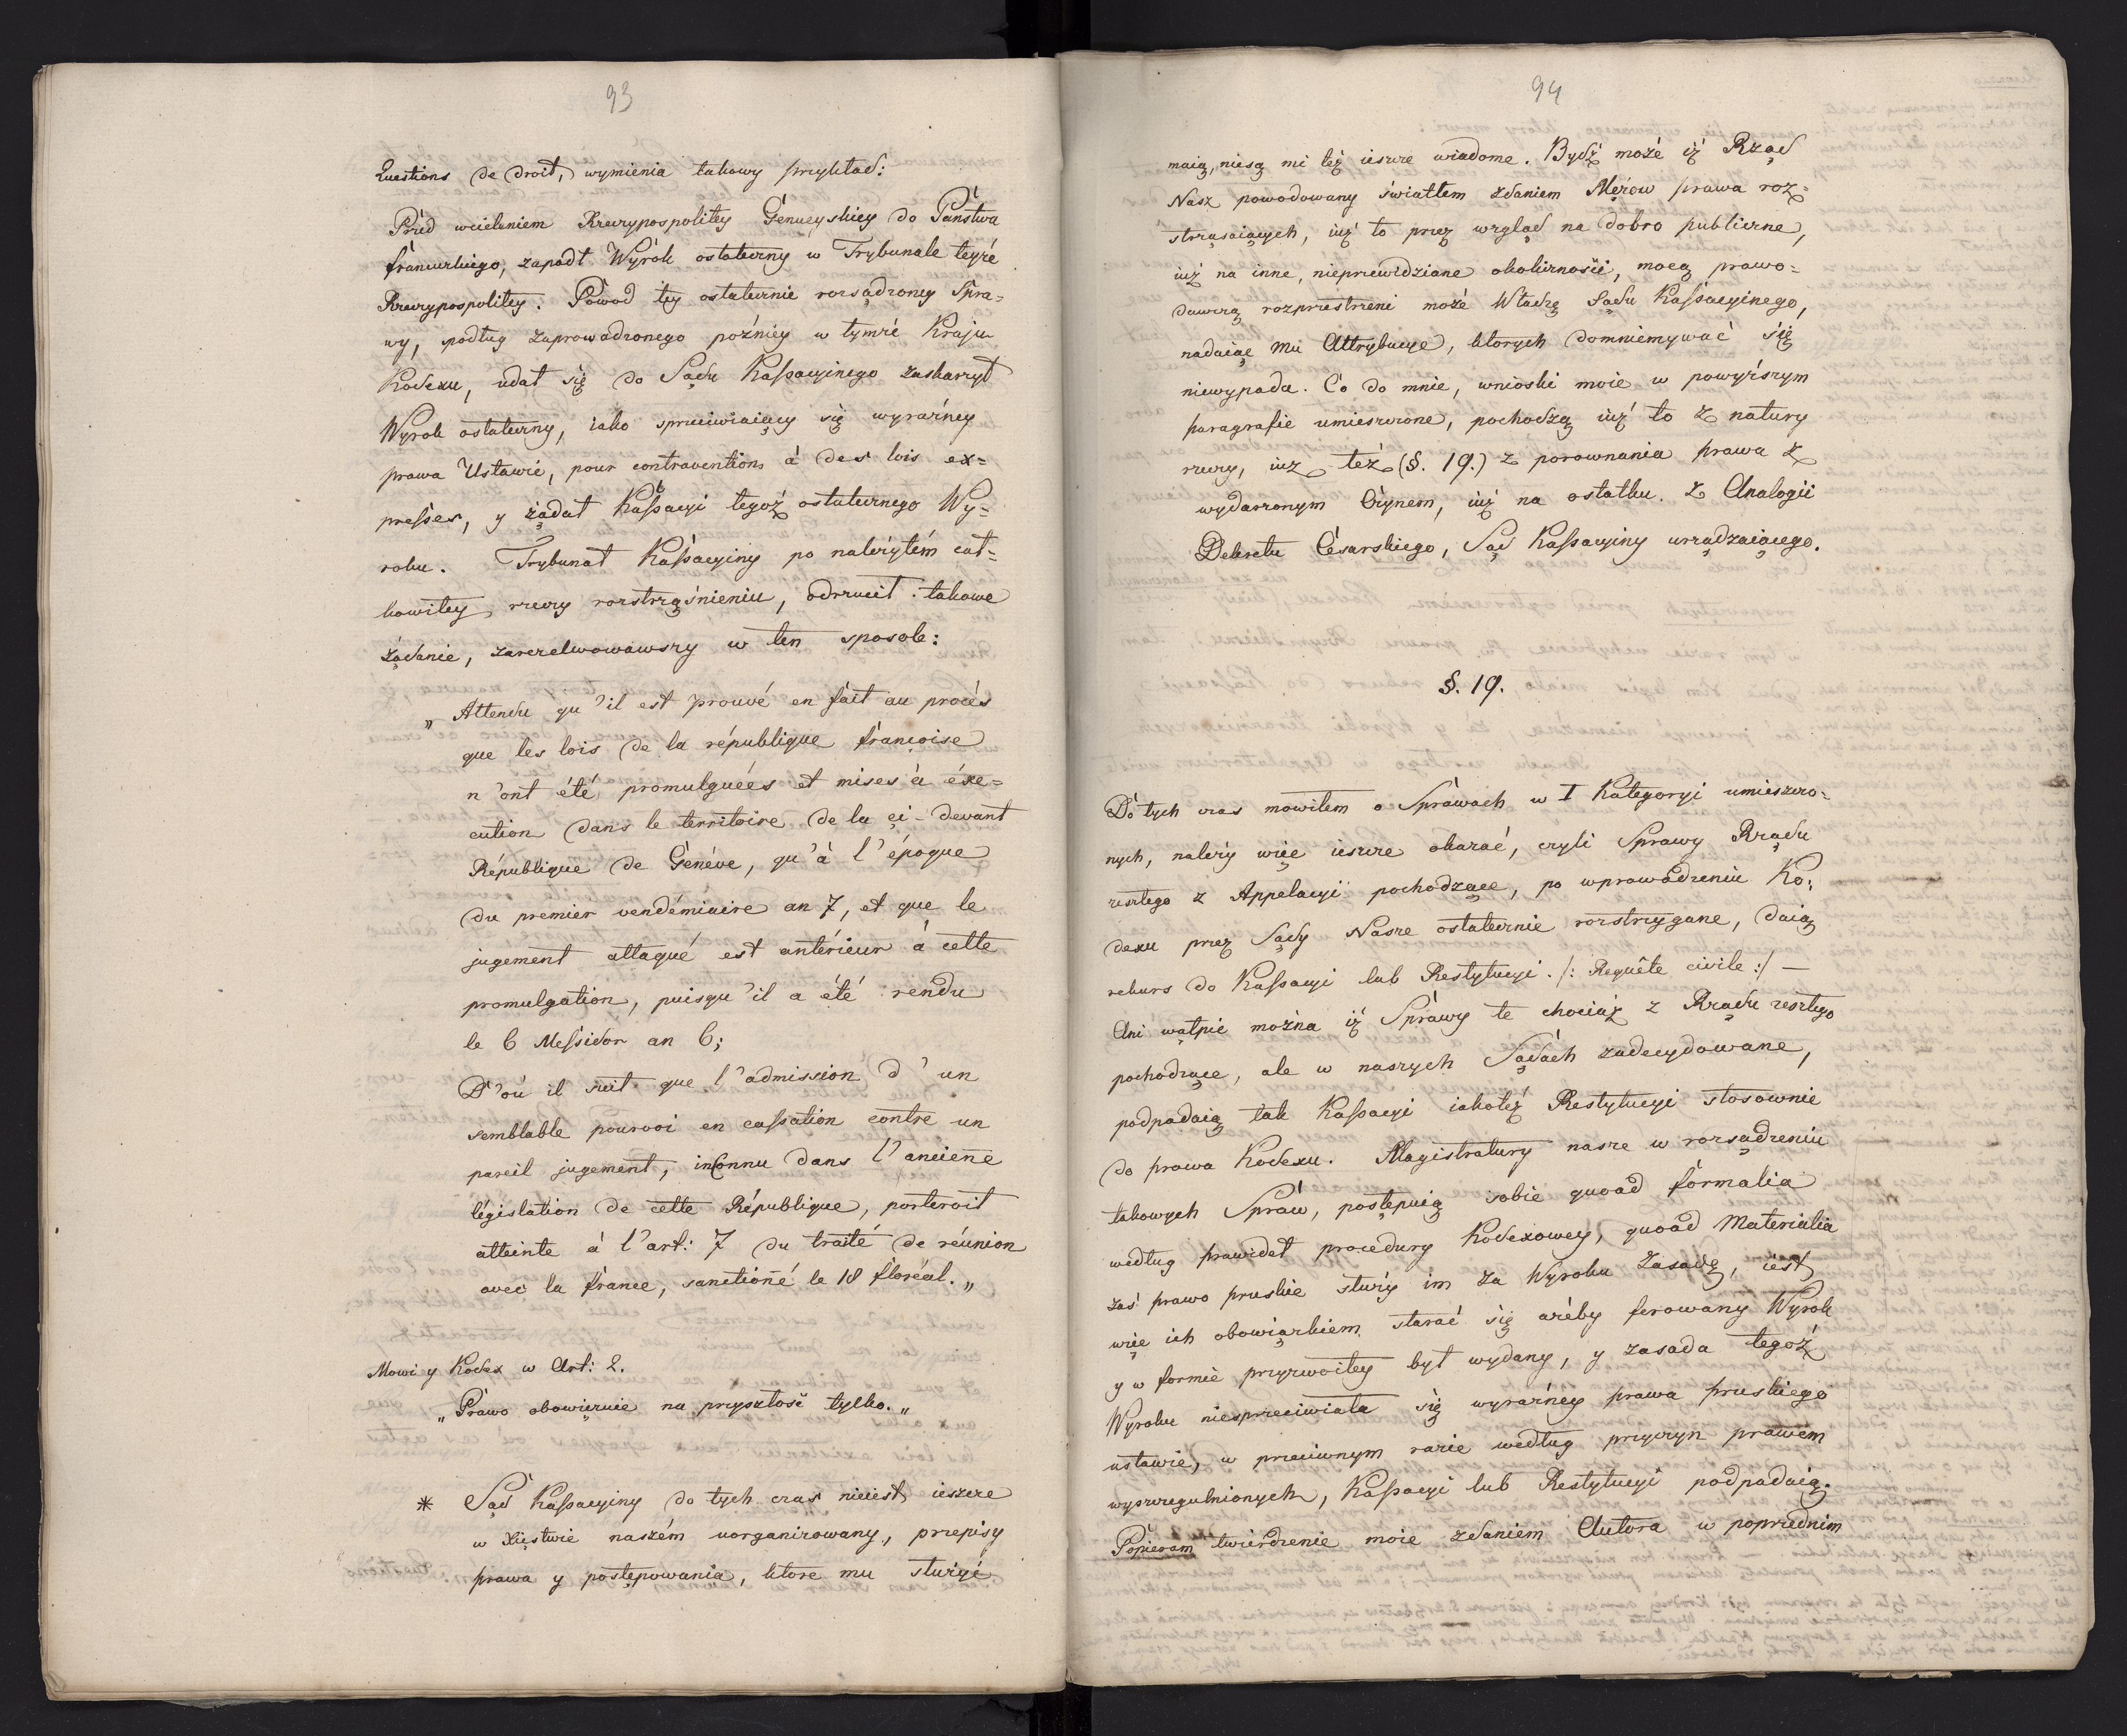 93
Questions de droit, wymienia takowy przykład:
Przed wcieleniem Rzeczypospolitey Genueyskiey do Państwa
francuzkiego, zapadł Wyrok ostateczny w Trybunale teyże
Rzeczypospolitey. Powod tey ostatecznie rozsądzoney Spra=
wy, podług zaprowadzonego pozniey w tymże Kraju
Kodexu, udał się do Sądu Kassacyinego zaskarzył
Wyrok ostateczny, iako sprzeciwiaiący się wyraźney
prawa Ustawie, pour contravention à des lois ex=
presses, y żądał Kassacyi tegoż ostatecznego Wy=
roku. Trybunał Kassacyiny po należytém cał=
kowitey rzeczy rozstrząśnieniu, odrzucił takowe
żądanie, zawerelwowawszy w ten sposob:
„ Attendu qu'il est prouvé en fait au procès
que les lois de la république françoise
n'ont été promulguées et mises à éxe=
cution dans le territoire de la ci-devant
République de Genéve, qu'à l'époque
du premier vendémiaire an 7, et que le
jugement attaqué est antérieur à cette
promulgation, puisqu'il a été rendu
le 6 Messidor an 6;
D'où il suit que l'admission d'un
semblable pourvoi en cassation contre un
pareil jugement, inconnu dans l'anciene
législation de cette République, porteroit
atteinte à l'art: 7 du traité de réunion
avec la france, sanctioné le 18 floréal. „
Mowi y Kodex w Art: 2.
„ Prawo obowięzuie na przyszłość tylko. „
* Sąd Kassacyiny do tych czas nieiest ieszcze
w Xięstwie naszém uorganizowany, przepisy
prawa y postępowania, ktore mu służyć
94
maią, niesą mi też ieszcze wiadome. Bydź może iż Rząd
Nasz powodowany światłem zdaniem Mężow prawa roz=
strząsaiących, iuż to przez wzgląd na dobro publiczne,
iuż na inne, nieprzewidziane okoliczności, mocą prawo=
dawczą rozprzestrzeni może Władzę Sądu Kassacyinego,
nadaiąc mu Attrybucye, ktorych domniemywać się
niewypada. Co do mnie, wnioski moie w powyższym
paragrafie umieszczone, pochodzą iuż to z natury
rzeczy, iuz też (§. 19.) z porownania prawa z
wydarzonym Czynem, iuż na ostatku z Analogii
Dekretu Cesarskiego, Sąd Kassacyiny urządzaiącego.
§. 19.
Do tych czas mowiłem o Sprawach w I Kategoryi umieszczo=
nych, należy więc ieszcze okazać, czyli Sprawy Rządu
zeszłego z Appelacyi pochodzące, po wprowadzeniu Ko=
dexu przez Sądy Nasze ostatecznie rozstrzygane, daią
rekurs do Kassacyi lub Restytucyi. /: Requête civile :/ —
Ani wątpić można iż Sprawy te chociaż z Rządu zeszłego
pochodzące, ale w naszych Sądach zadecydowane,
podpadaią tak Kassacyi iakoteż Restytucyi stosownie
do prawa Kodexu. Magistratury nasze w rozsądzeniu
takowych Spraw, postępuią sobie quoad formalia
według prawideł procedury Kodexowey, quoad Materialia
zaś prawo pruskie służy im za Wyroku Zasadę, iest
więc ich obowiązkiem starać się ażeby ferowany Wyrok
y w formie przyzwoitey był wydany, y zasada tegoż
Wyroku niesprzeciwiała się wyraźney prawa pruskiego
ustawie, w przeciwnym razie według przyczyn prawem
wyszczegulnionych, Kassacyi lub Restytucyi podpadaią.
Popieram twierdzenie moie zdaniem Autora w poprzednim